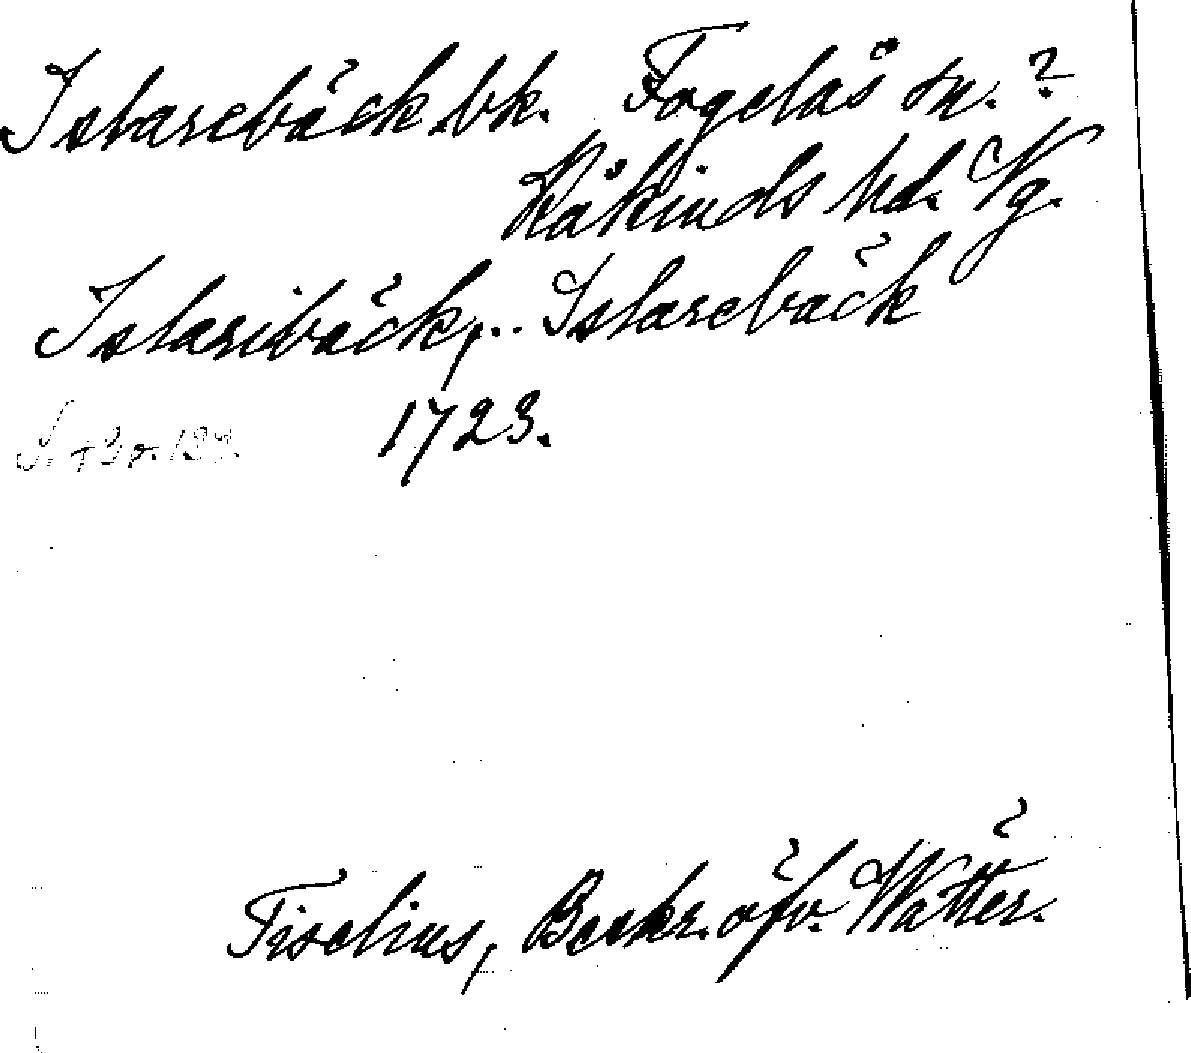 Islarebäck, bk. Fogelås sn.?
Kåkinds hd. Vg.
Islaribäck, .. Islarebäck
1723.
Tiselius, Beskr. öfv. Wätter.